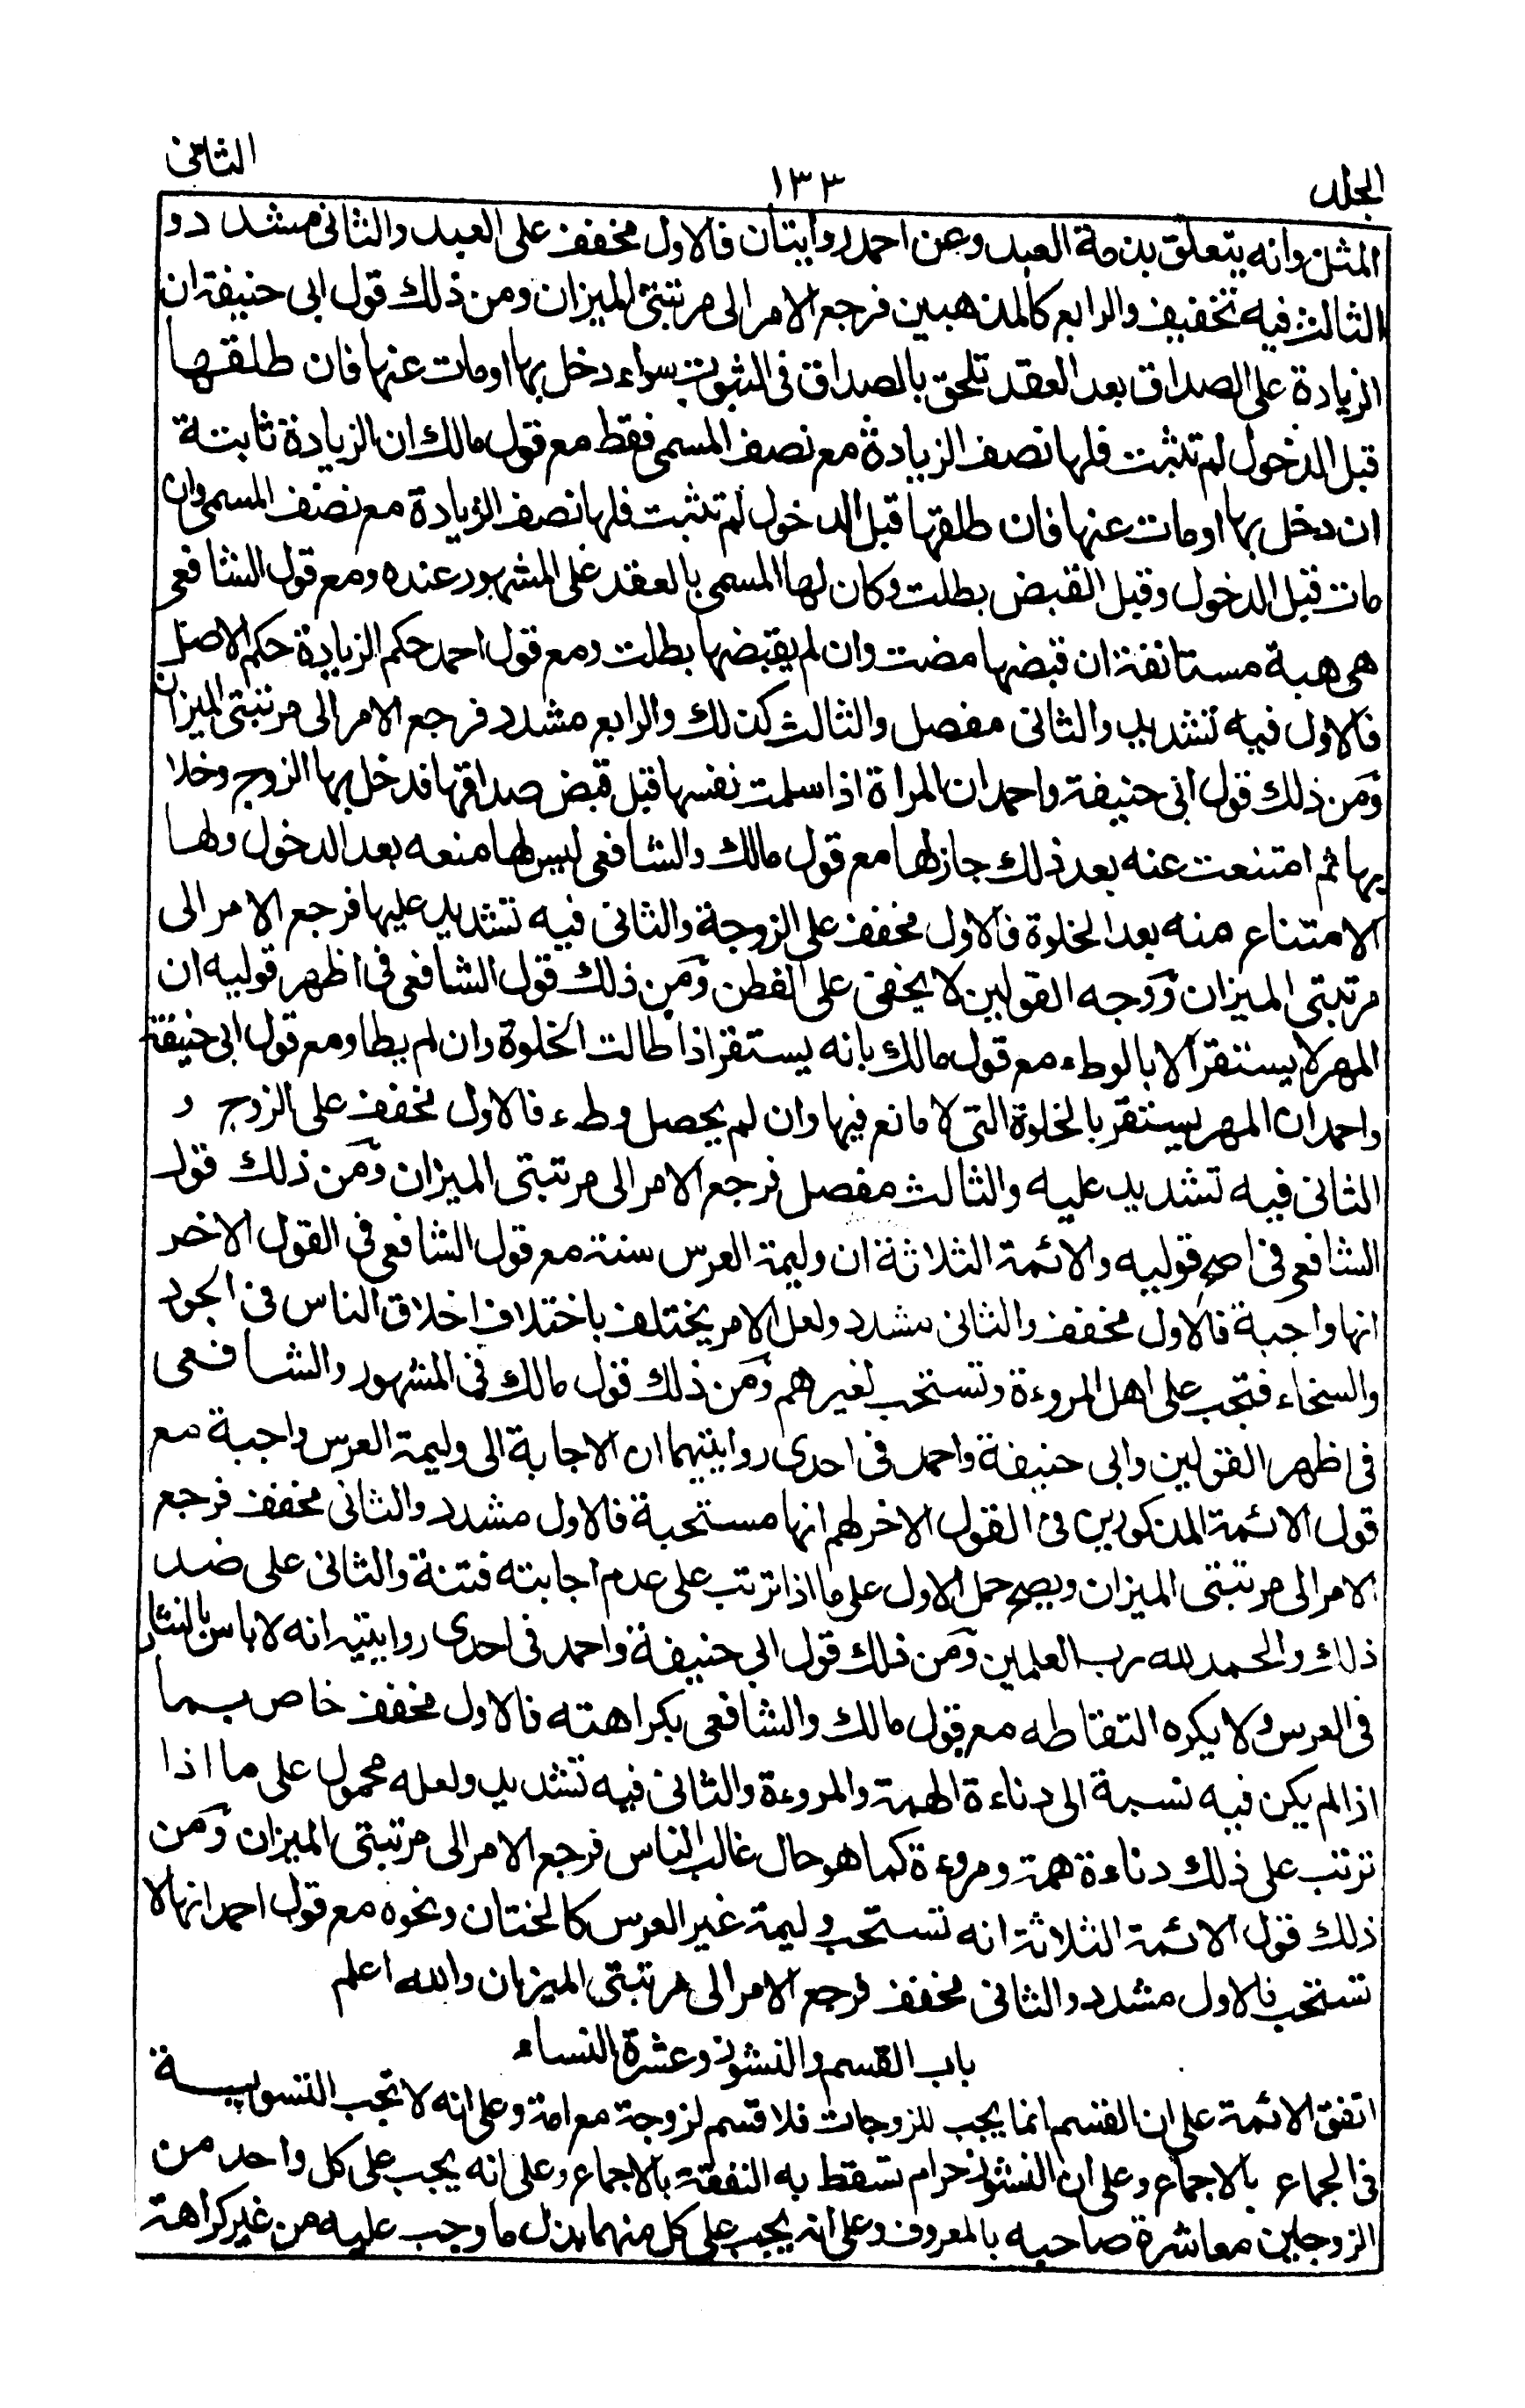 الجلد
١٣٣
الثانى
المثل وانه يتعلق بذمة العبد وعن احمد روايتان فالاول مخفف على العبد والثانى مشدد و
الثالث فيه تخفيف والرابع كالمذهبين فرجع الامر الى مرتبتى الميزان ومن ذلك قول ابى حنيفة ان
الزيادة على الصداق بعد العقد تلحق بالصداق فى الثبوت سواء دخل بها او مات عنها فان طلقها
قبل الدخول لم تثبت فلها نصف الزيادة مع نصف المسمى فقط مع قول مالك ان الزيادة ثابتة
ان دخل بها او مات عنها فان طلقها قبل الدخول لم تثبت فلها نصف الزيادة مع نصف المسمى وان
مات قبل الدخول وقبل القبض بطلت وكان لها المسمى بالعقد على المشهور عنده ومع قول الشافعى
هى هبة مستانفة ان قبضها مضت وان لم يقبضها بطلت ومع قول احمد حكم الزيادة حكم الاصل
فالاول فيه تشديد والثانى مفصل والثالث كذلك والرابع مشدد فرجع الامر الى مرتبتى الميزان
ومن ذلك قول ابى حنيفة واحمد ان المراة اذا سلمت نفسها قبل قبض صداقها فدخل بها الزوج وخلا
بها ثم امتنعت عنه بعد ذلك جاز لها مع قول مالك والشافعى ليس لها منعه بعد الدخول ولها
الامتناع منه بعد الخلوة فالاول مخفف على الزوجة والثانى فيه تشديد عليها فرجع الامر الى
مرتبتى الميزان ووجه القولين لا يخفى على الفطن ومن ذلك قول الشافعى فى اظهر قوليه ان
المهر لا يستقر الا بالوطء مع قول مالك بانه يستقر اذا طالت الخلوة وان لم يطا ومع قول ابى حنيفة
واحمد ان المهر يستقر بالخلوة التى لا مانع فيها وان لم يحصل وطء فالاول مخفف على الزوج و
الثانى فيه تشديد عليه والثالث مفصل فرجع الامر الى مرتبتى الميزان ومن ذلك قول
الشافعى فى اصح قوليه والائمة الثلاثة ان وليمة العرس سنة مع قول الشافعى فى القول الاخر
انها واجبة فالاول مخفف والثانى مشدد ولعل الامر يختلف باختلاف اخلاق الناس فى الجود
والسخاء فتجب على اهل المروءة وتستحب لغيرهم ومن ذلك قول مالك فى المشهور والشافعى
فى اظهر القولين وابى حنيفة واحمد فى احدى روايتيهما ان الاجابة الى وليمة العرس واجبة مع
قول الائمة المذكورين فى القول الاخر لهم انها مستحبة فالاول مشدد والثانى مخفف فرجع
الامر الى مرتبتى الميزان ويصح حمل الاول على ما اذا ترتب على عدم اجابته فتنة والثانى على ضد
ذلك والحمد لله رب العلمين ومن ذلك قول ابى حنيفة واحمد فى احدى روايتيه انه لا باس بالنثار
فى العرس ولا يكره التقاطه مع قول مالك والشافعى بكراهته فالاول مخفف خاص بما
اذا لم يكن فيه نسبة الى دناءة الهمة والمروءة والثانى فيه تشديد ولعله محمول على ما اذا
ترتب على ذلك دناءة همة ومروءة كما هو حال غالب الناس فرجع الامر الى مرتبتى الميزان ومن
ذلك قول الائمة الثلاثة انه تستحب وليمة غير العرس كالختان ونحوه مع قول احمد انها لا
تستحب فالاول مشدد والثانى مخفف فرجع الامر الى مرتبتى الميزان والله اعلم
باب القسم والنشوز وعشرة النساء
اتفق الائمة على ان القسم انما يجب للزوجات فلا قسم لزوجة مع امة وعلى انه لا تجب التسوية
فى الجماع بالاجماع وعلى ان النشوز حرام تسقط به النفقة بالاجماع وعلى انه يجب على كل واحد من
الزوجين معاشرة صاحبه بالمعروف وعلى انه يجب على كل منهما بذل ما وجب عليه من غير كراهة